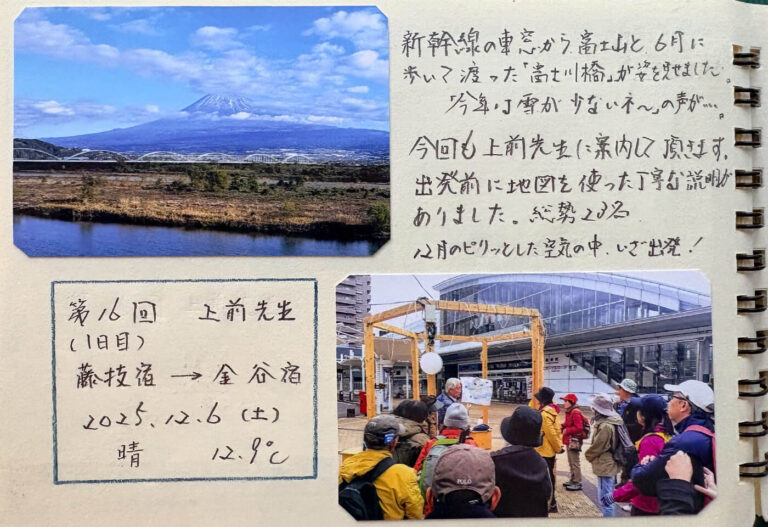 新幹線の車窓から、富士山と、6月に
歩いて渡った「富士川橋」が姿を見せました。
「今年は雪が少ないネ〜」の声が…。
今回も上前先生に案内して頂きます。
出発前に地図を使った丁寧な説明が
ありました。総勢23名
12月のピリッとした空気の中、いざ出発!
第16回 上前先生
(1日目)
藤枝宿 → 金谷宿
2025.12.6(土)
晴 12.9℃
POLO